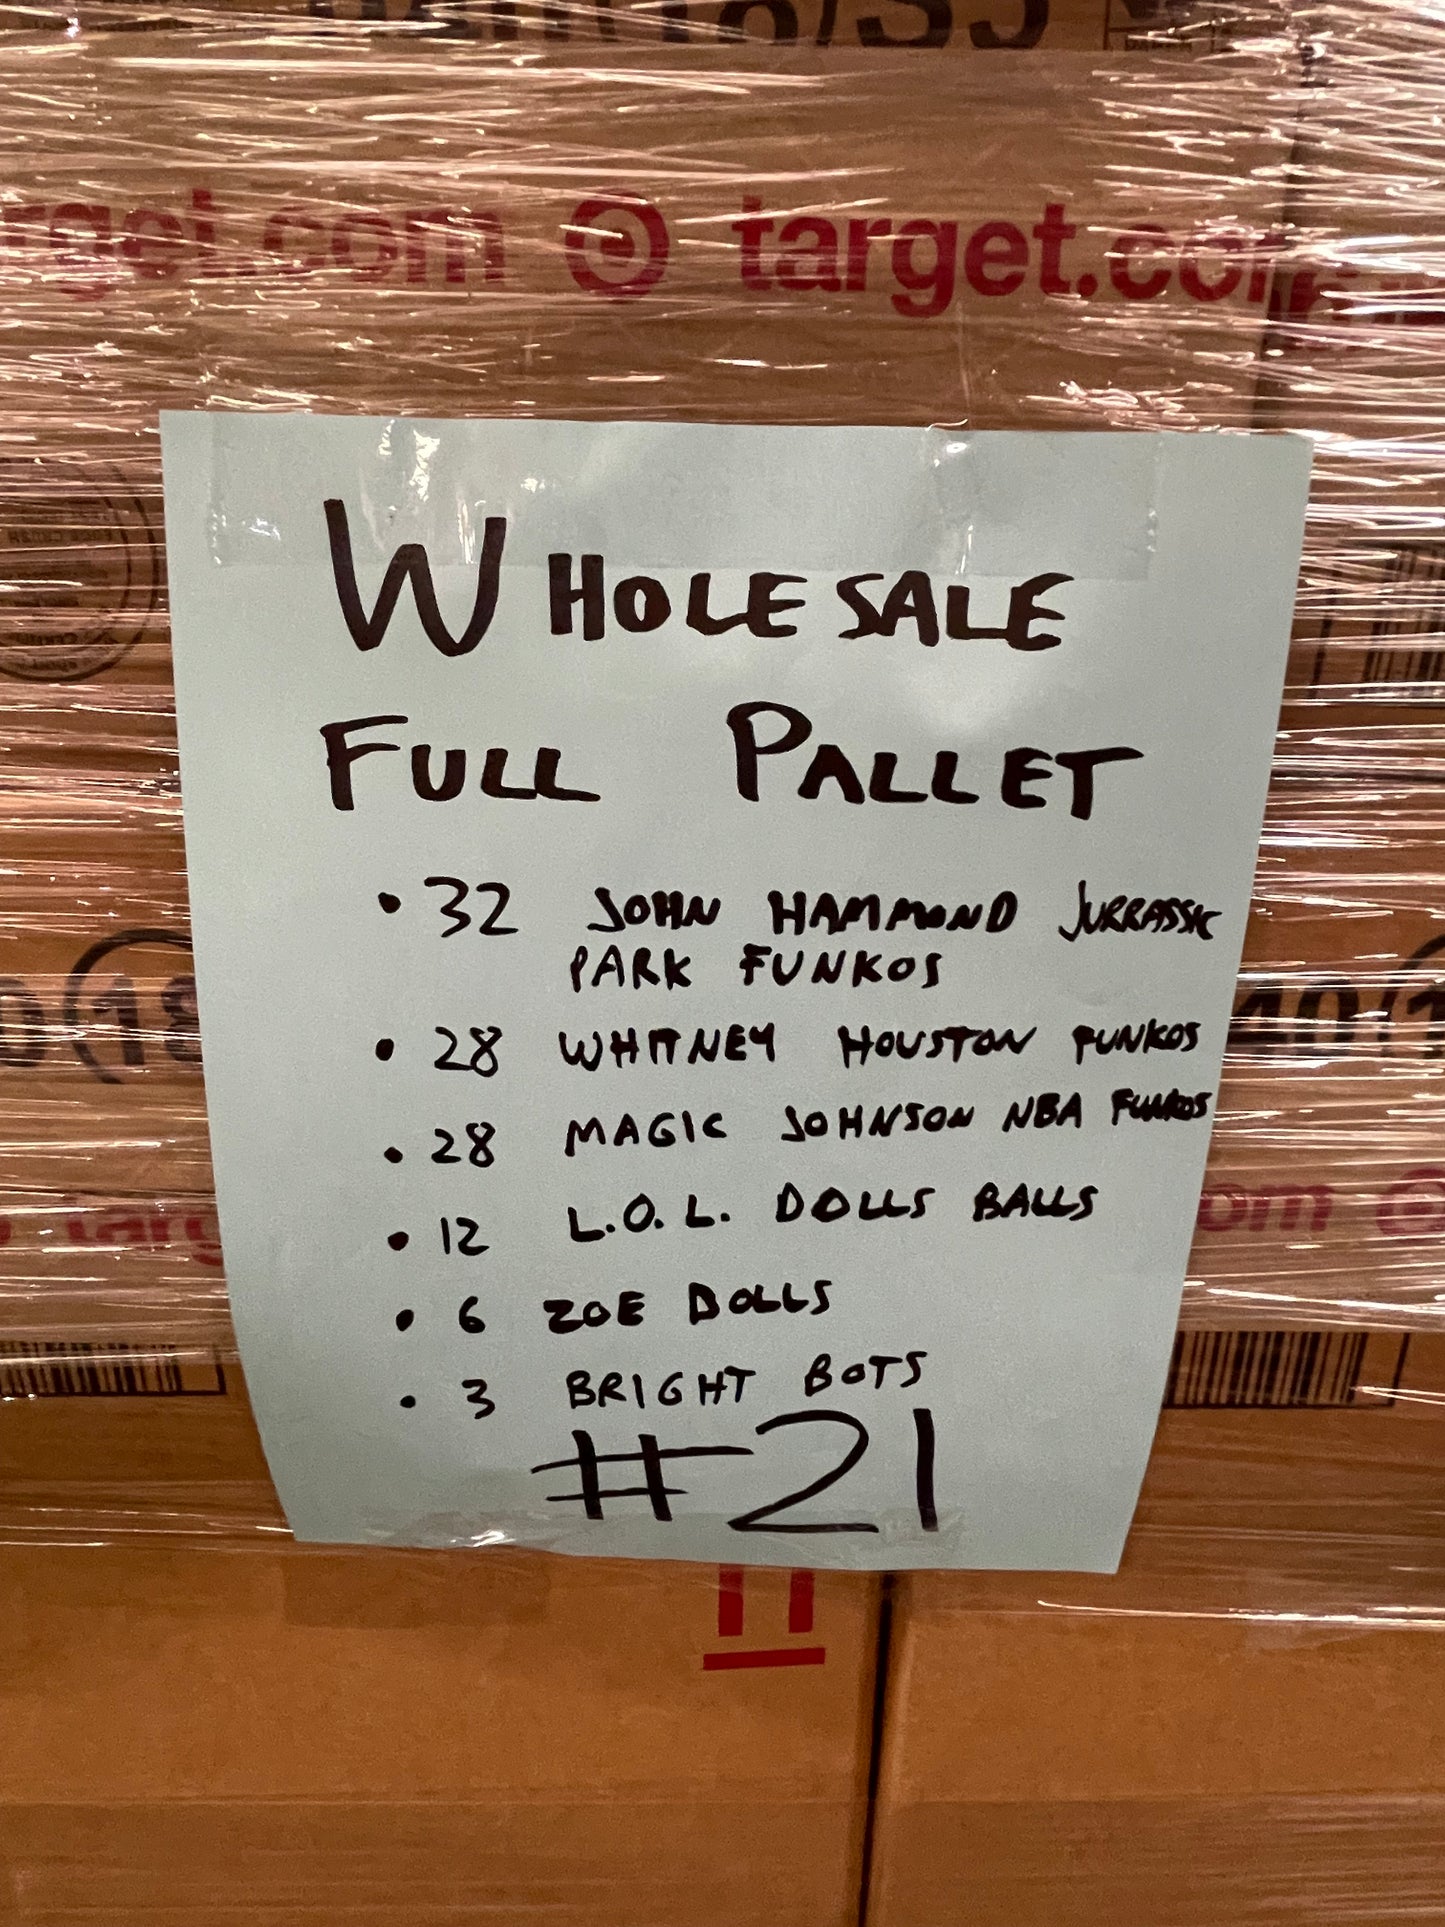 target.com
WHOLESALE
FULL PALLET
• 32 JOHN HAMMOND JURRASSIC
PARK FUNKOS
• 28 WHITNEY HOUSTON FUNKOS
• 28 MAGIC JOHNSON NBA FUNKOS
• 12 L.O.L. DOLLS BALLS
• 6 ZOE DOLLS
• 3 BRIGHT BOTS
#21